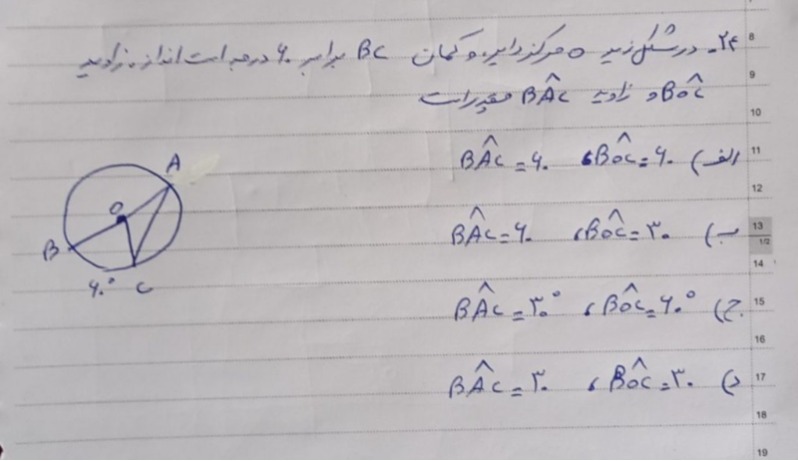 ۲۴- در شکل زیر o مرکز دایره و کمان BC برابر ۶۰ درجه است اندازه زاویه
BÔC و زاویه BÂC چقدر است
الف) BÔC = ۶۰ ، BÂC = ۶۰
ب) BÔC = ۳۰ ، BÂC = ۶۰
ج) BÔC = ۶۰° ، BÂC = ۳۰°
د) BÔC = ۳۰ ، BÂC = ۳۰
A
O
B
۶۰° C
8
9
10
11
12
13
1/2
14
15
16
17
18
19